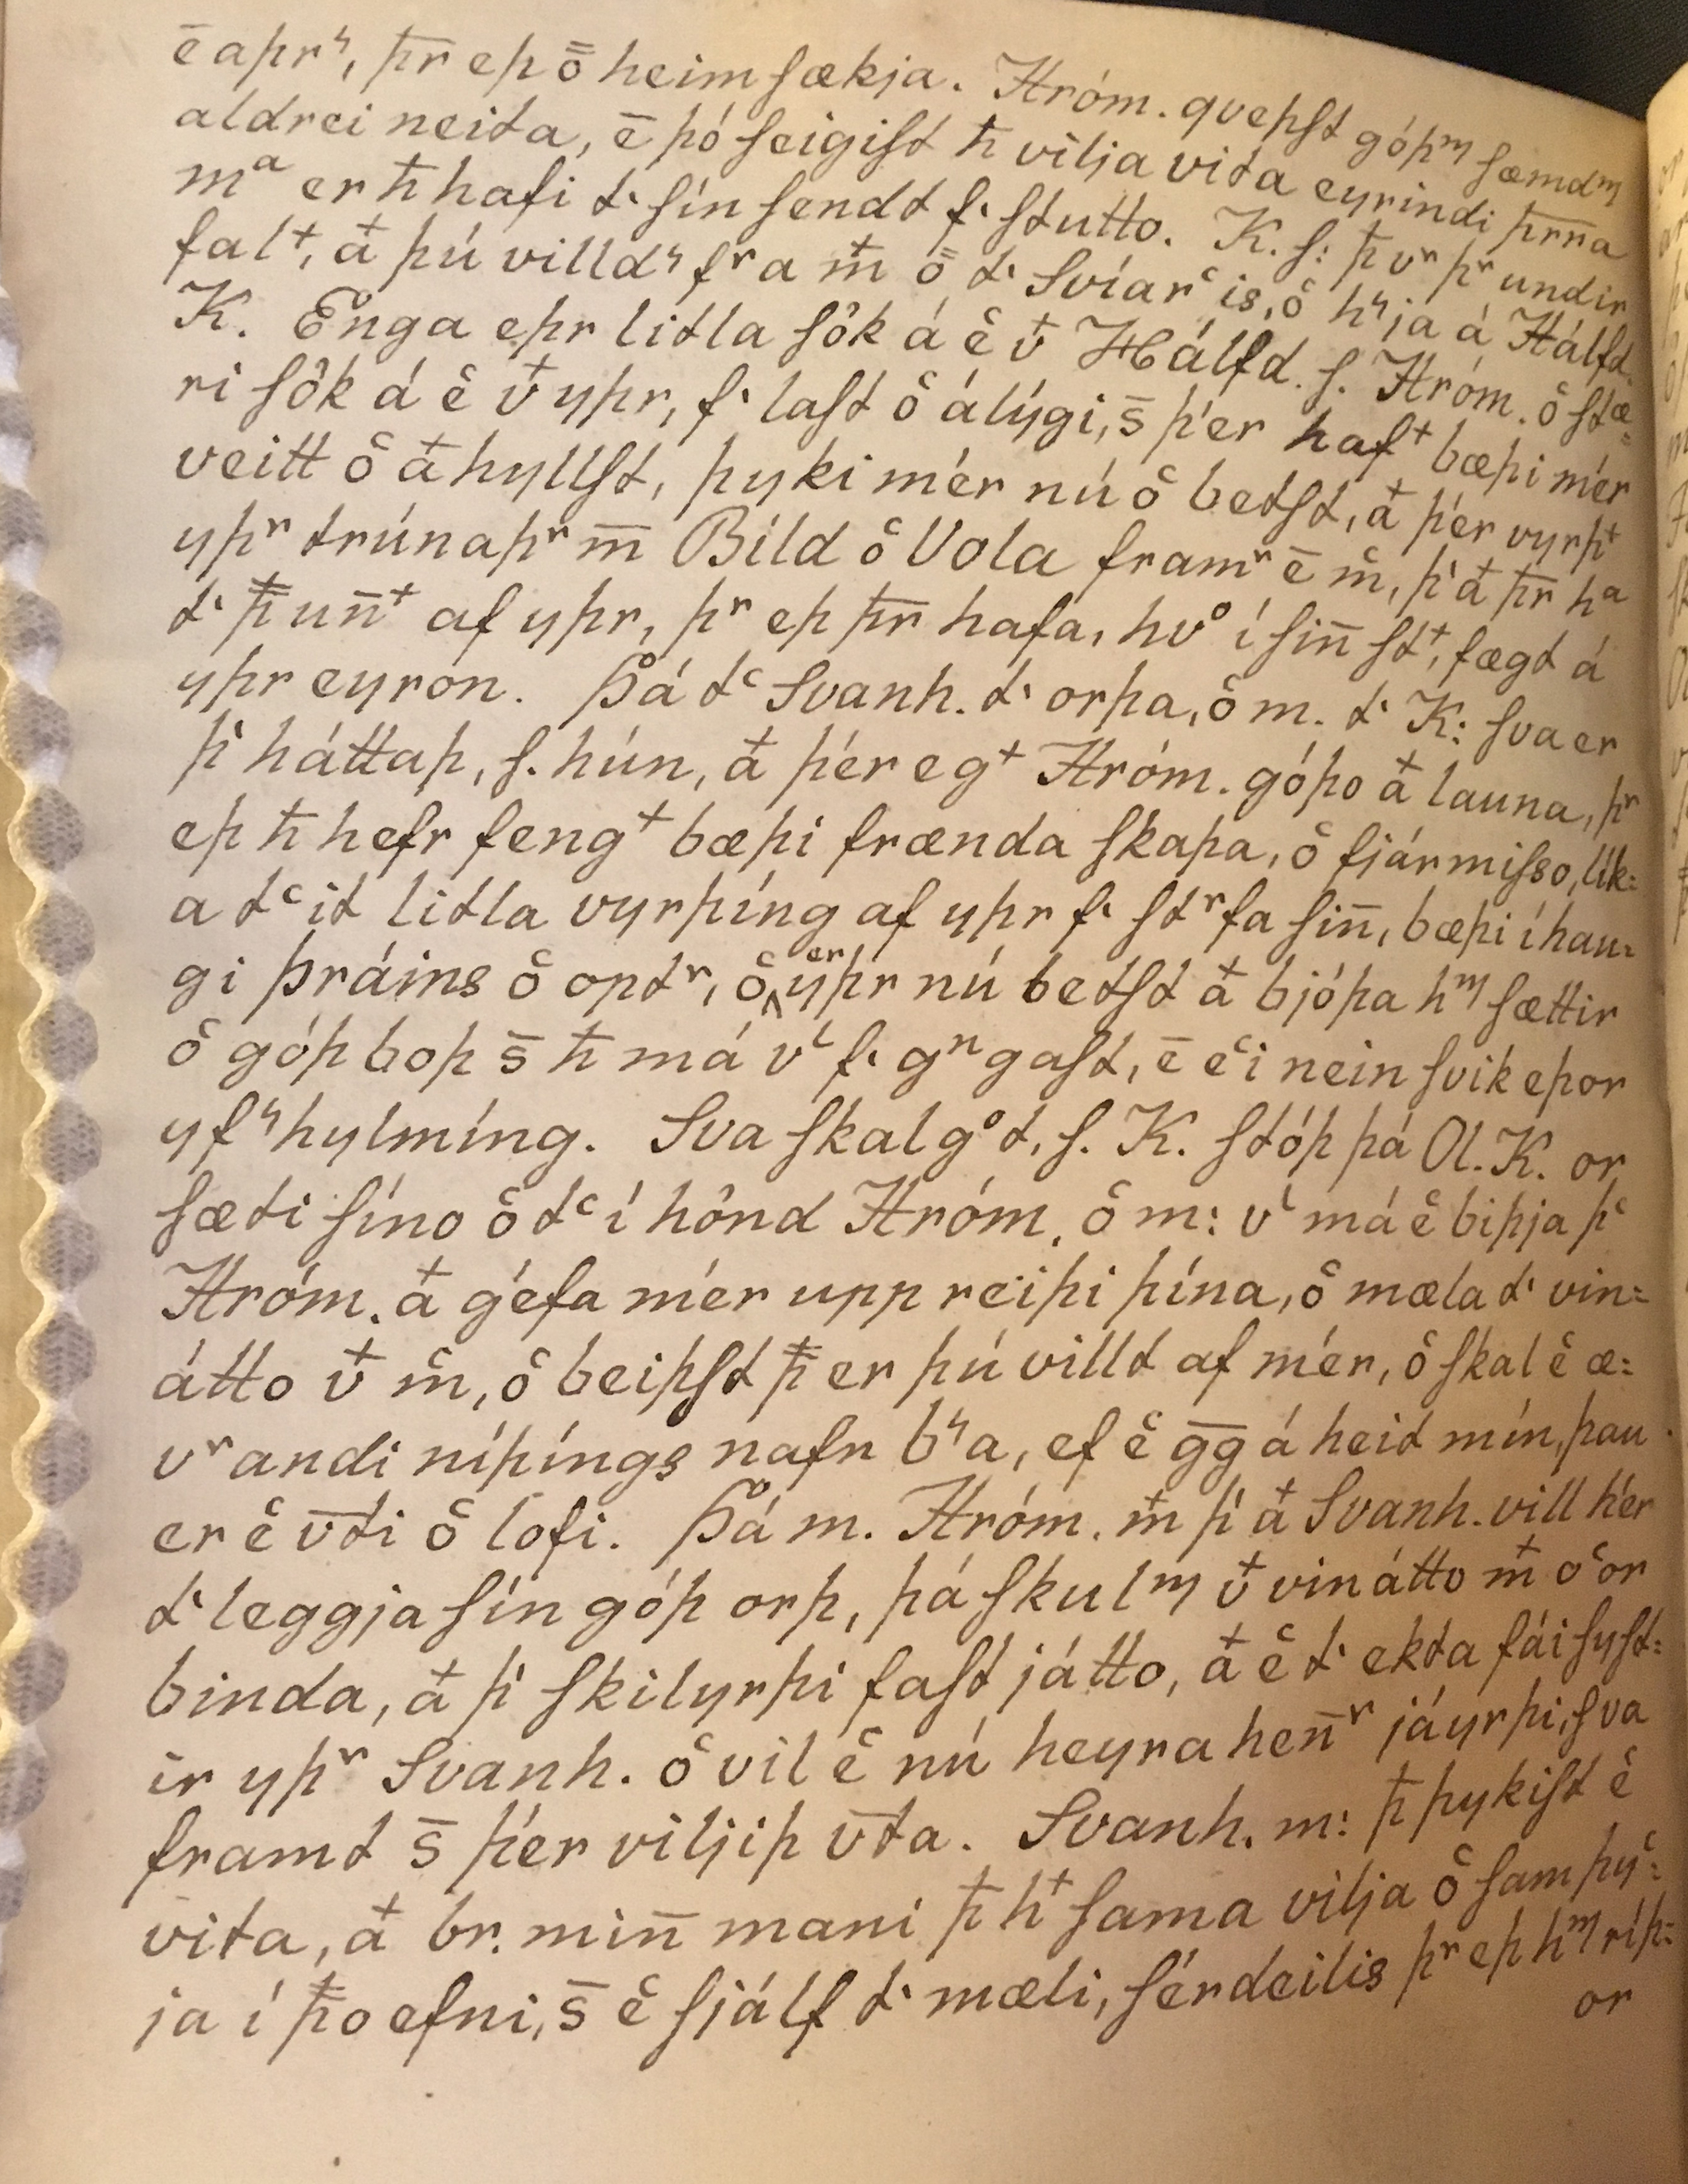 ē aþrꝭ, þr̄ eþ ō̄ heimſækja. Hróm. qveþſt góþᵐ ſæmdᵐ
aldrei neita, ē þó ſeigiſt ħ vilja vita eyrindi þr̄r̄a
mᵃ er ħ hafi tꞌ ſín ſendt fꞌ ſtutto. K. ſ: ꝥ vʳ þʳ undir
falᵗ, at̄ þú villdꝭ fʳa m̄ ō̄ tꞌ Svíarᶜis, oᶜ hꝭja á Hálfd.
K. Enga eþr litla ſôk á eᶜ v̄ Hálfd. ſ. Hróm. oᶜ ſtæ=
ri ſôk á eᶜ v̄ yþr, fꞌ laſt oᶜ álýgi, s̄ þér hafᵗ bæþi mér
veitt oᶜ at̄ hyllſt, þyki mér nú oᶜ betſt, at̄ þér vyrþᵗ
yþʳ trúnaþʳ m̄ Bíld oᶜ Vola framʳ ē mᶜ, þꞌ at̄ þr̄ hᵃ
tꞌ ꝥ un̄ᵗ af yþr, þʳ eþ þr̄ hafa, hvᵒ í ſin̄ ſtᵗ, ſægt á
yþr eyron. Þá tᶜ Svanh. tꞌ orþa, oᶜ m. tꞌ K: ſva er
þꞌ háttaþ, ſ. hún, at̄ þér egᵗ Hróm. góþo at̄ launa, þʳ
eþ ħ hefr fengᵗ bæþi frænda ſkaþa, oᶜ fjármiſso, lík=
a tᶜit litla vyrþíng af yþr fꞌ ſtʳfa ſin̄, bæþi í hau=
gi Þráins oᶜ optʳ, oᶜ er yþr nú betſt at̄ bjóþa hᵐ ſættir
oᶜ góþ boþ s̄ ħ má vᶜ fꞌ gⁿgaſt, ē eᶜi nein ſvik eþor
yfꝭhylmíng. Sva ſkal gᵒt, ſ. K. ſtóþ þá Ol. K. or
ſæti ſíno oᶜ tᶜ í hônd Hróm. oᶜ m: vᶜ má eᶜ biþja þᶜ
Hróm. at̄ géfa mér upp reiþi þína, oᶜ mæla tꞌ vin=
átto v̄ mᶜ, oᶜ beiþſt ꝥ er þú villt af mér, oᶜ ſkal eᶜ æ=
vʳandi níþíngs nafn bꝭa, ef eᶜ ḡḡ á heit mín, þau
er eᶜ v̄ti oᶜ lofi. Þá m. Hróm. m̄ þꞌ at̄ Svanh. vill hér
tꞌ leggja ſín góþ orþ, þá ſkulᵐ v̄ vinátto m̄ oᶜor
binda, at̄ þꞌ ſkilyrþi faſt játto, at̄ eᶜ tꞌ ekta fái ſyſt=
ir yþʳ Svanh. oᶜ vil eᶜ nú heyra hen̄ʳ jáyrþi, ſva
framt s̄ þér viljiþ v̄ta. Svanh. m: ꝥ þykiſt eᶜ
vita, at̄ br. min̄ mani ꝥ hᵗ ſama vilja oᶜ ſamþyᶜ=
ja í ꝥo efni, s̄ eᶜ ſjálf tꞌ mæli, ſérdeilis þʳ eþ hᵐ ríþ=
or